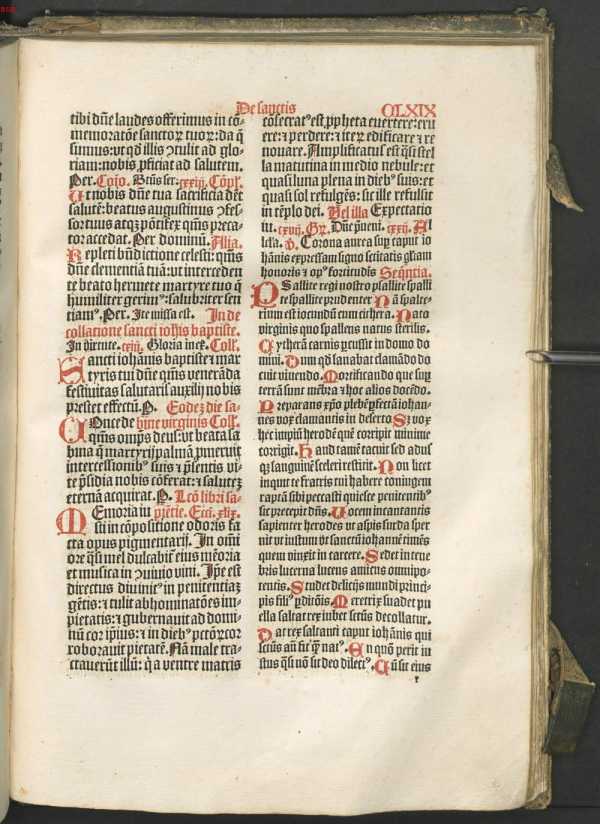 De sanctis
CLXIX
tibi dñe laudes offerimus in cō
memoratōe sanctoꝝ tuoꝝ: da q̄
sumus: vt qd illis ꝯtulit ad glo-
riam: nobis ꝓficiat ad salutem.
Per. Cōio. Btūs ser. cxxiij. Cōpl.
Ut nobis dñe tua sacrificia dēt
salutē: beatus augustinus ꝯfes-
sor tuus atqꝫ pōtifex qm̄s preca-
tor accedat. Per dominū. Alia.
Repleti bn̄dictione celesti: qm̄s
dñe clementiā tuā: vt interceden
te beato hermete martyre tuo q̄
humiliter gerimꝰ: salubriter sen
tiamꝰ. Per. Ite missa est. In de
collatione sancti iohis baptiste.
In ꝟirtute. cxiij. Gloria in ex. Coll.
Sancti iohānis baptiste ⁊ mar
tyris tui dñe qm̄s venerāda
festiuitas salutaris auxilij nobis
prestet effectū. P. Eodē die sa-
bine virginis Coll.
Concede
qm̄s omp̄s deus: vt beata sa
bina q̄ martyrij palmā ꝓmeruit
intercessionibꝰ suis ⁊ p̄sentis vi-
te p̄sidia nobis cōferat: ⁊ salutēꝫ
eternā acquirat. P. Lcō libri sa-
pietie. Ecci. xlix.
Memoria iu
sti in cōpositione odoris fa
cta opus pigmentarij. In om̄i
ore q̄si mel dulcabit̄ eius mēoria
et musica in ꝯuiuio vini. Ip̄e est
directus diuinitꝰ in penitentiaꝫ
gētis: ⁊ tulit abhominatōes im-
pietatis: ⁊ gubernauit ad domi-
nū cor ip̄ius: ⁊ in diebꝰ pctōꝝ cor
roborauit pietatē. Nā male tra-
ctauerūt illū: q̄ a ventre matris
cōsecratꝰ est ꝓpheta euertere: eru
ere: ⁊ perdere: ⁊ iteꝝ edificare ⁊ re
nouare. Amplificatus est q̄si stel
la matutina in medio nebule: et
quasi luna plena in diebꝰ suis: et
quasi sol refulgēs: sic ille refulsit
in tēplo dei. Uel illa Expectatio
iu. cxvij. Gꝝ. Dñe p̄ueni. cxxij. Al
lela. ꝟ. Corona aurea suꝑ caput io
hānis expressam signo scitatis gl̄iam
honoris ⁊ opꝰ fortitudis Seq̄ntia.
Psallite regi nostro psallite psalli
te psallite prudenter Nā spalte-
rium est iocundū cum cithera. Nato
virginis quo spalleus natus sterilis.
Cytherā carnis ꝑcussit in domo do
mini. Dum qd sanabat clamādo do
cuit viuendo. Mortificando que suꝑ
terrā sunt mēbra ⁊ hoc alios docēdo.
Preparans xp̄o plebē ꝑfectā iohan-
nes vox clamantis in deserto Sꝫ vox
hec impiū herodē quē corripit minime
corrigit. Haud tamē tacuit sed adus
qꝫ sanguinē sceleri restitit. Non licet
inquit te fratris tui habere coniugem
raptā sibi peccasti quiesce penitentibꝰ
sic precepit dn̄s. Uocem incantantis
sapienter herodes vt aspis surda sper
nit vt iustum vt sanctū iohannē timēs
quem vinxit in carcere. Sedet in tene
bris lucerna lucens amicus omnipo-
tentis. Studet delicijs mundi princi-
pis filiꝰ ꝑditōis. Meretrix suadet pu
ella saltat rex iubet sctūs decollatur.
Dat rex saltanti caput iohānis qui
sctūs aū fit qꝫ natꝰ. En quō perit iu
stus q̄si nō sit deo dilectꝰ. Cū sit eius
r